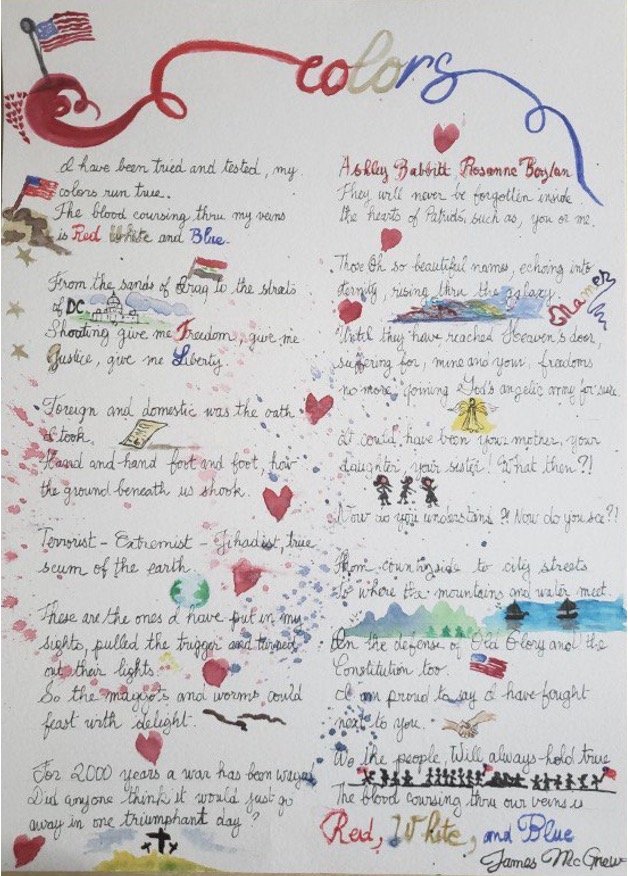 colors
I have been tried and tested, my
colors run true.
The blood coursing thru my veins
is Red White and Blue.
From the sands of Iraq to the streets
of DC
Shouting give me Freedom, give me
Justice, give me Liberty.
Foreign and domestic was the oath
I took.
Hand and hand foot and foot, how
the ground beneath us shook.
Terrorist - Extremist - Jihadist, true
scum of the earth.
These are the ones I have put in my
sights, pulled the trigger and turned
out their lights.
So the maggots and worms could
feast with delight.
For 2000 years a war has been
Did anyone think it would just go
away in one triumphant day?
Ashley Babbitt Rosanne Boylan
They will never be forgotten inside
the hearts of Patriots, such as, you or me.
Those Oh so beautiful names, echoing into
eternity, rising thru the galaxy.
Names
Until they have reached Heaven's door,
suffering for, mine and your, freedoms
no more, joining God's angelic army for sure.
It could have been your mother, your
daughter, your sister! What then?!
Now do you understand?! Now do you see?!
From countryside to city streets
to where the mountains and water meet.
In the defense of Old Glory and the
Constitution too.
I am proud to say I have fought
next to you.
We the people, Will always hold true
The blood coursing thru our veins is
Red, White, and Blue
James McGrew